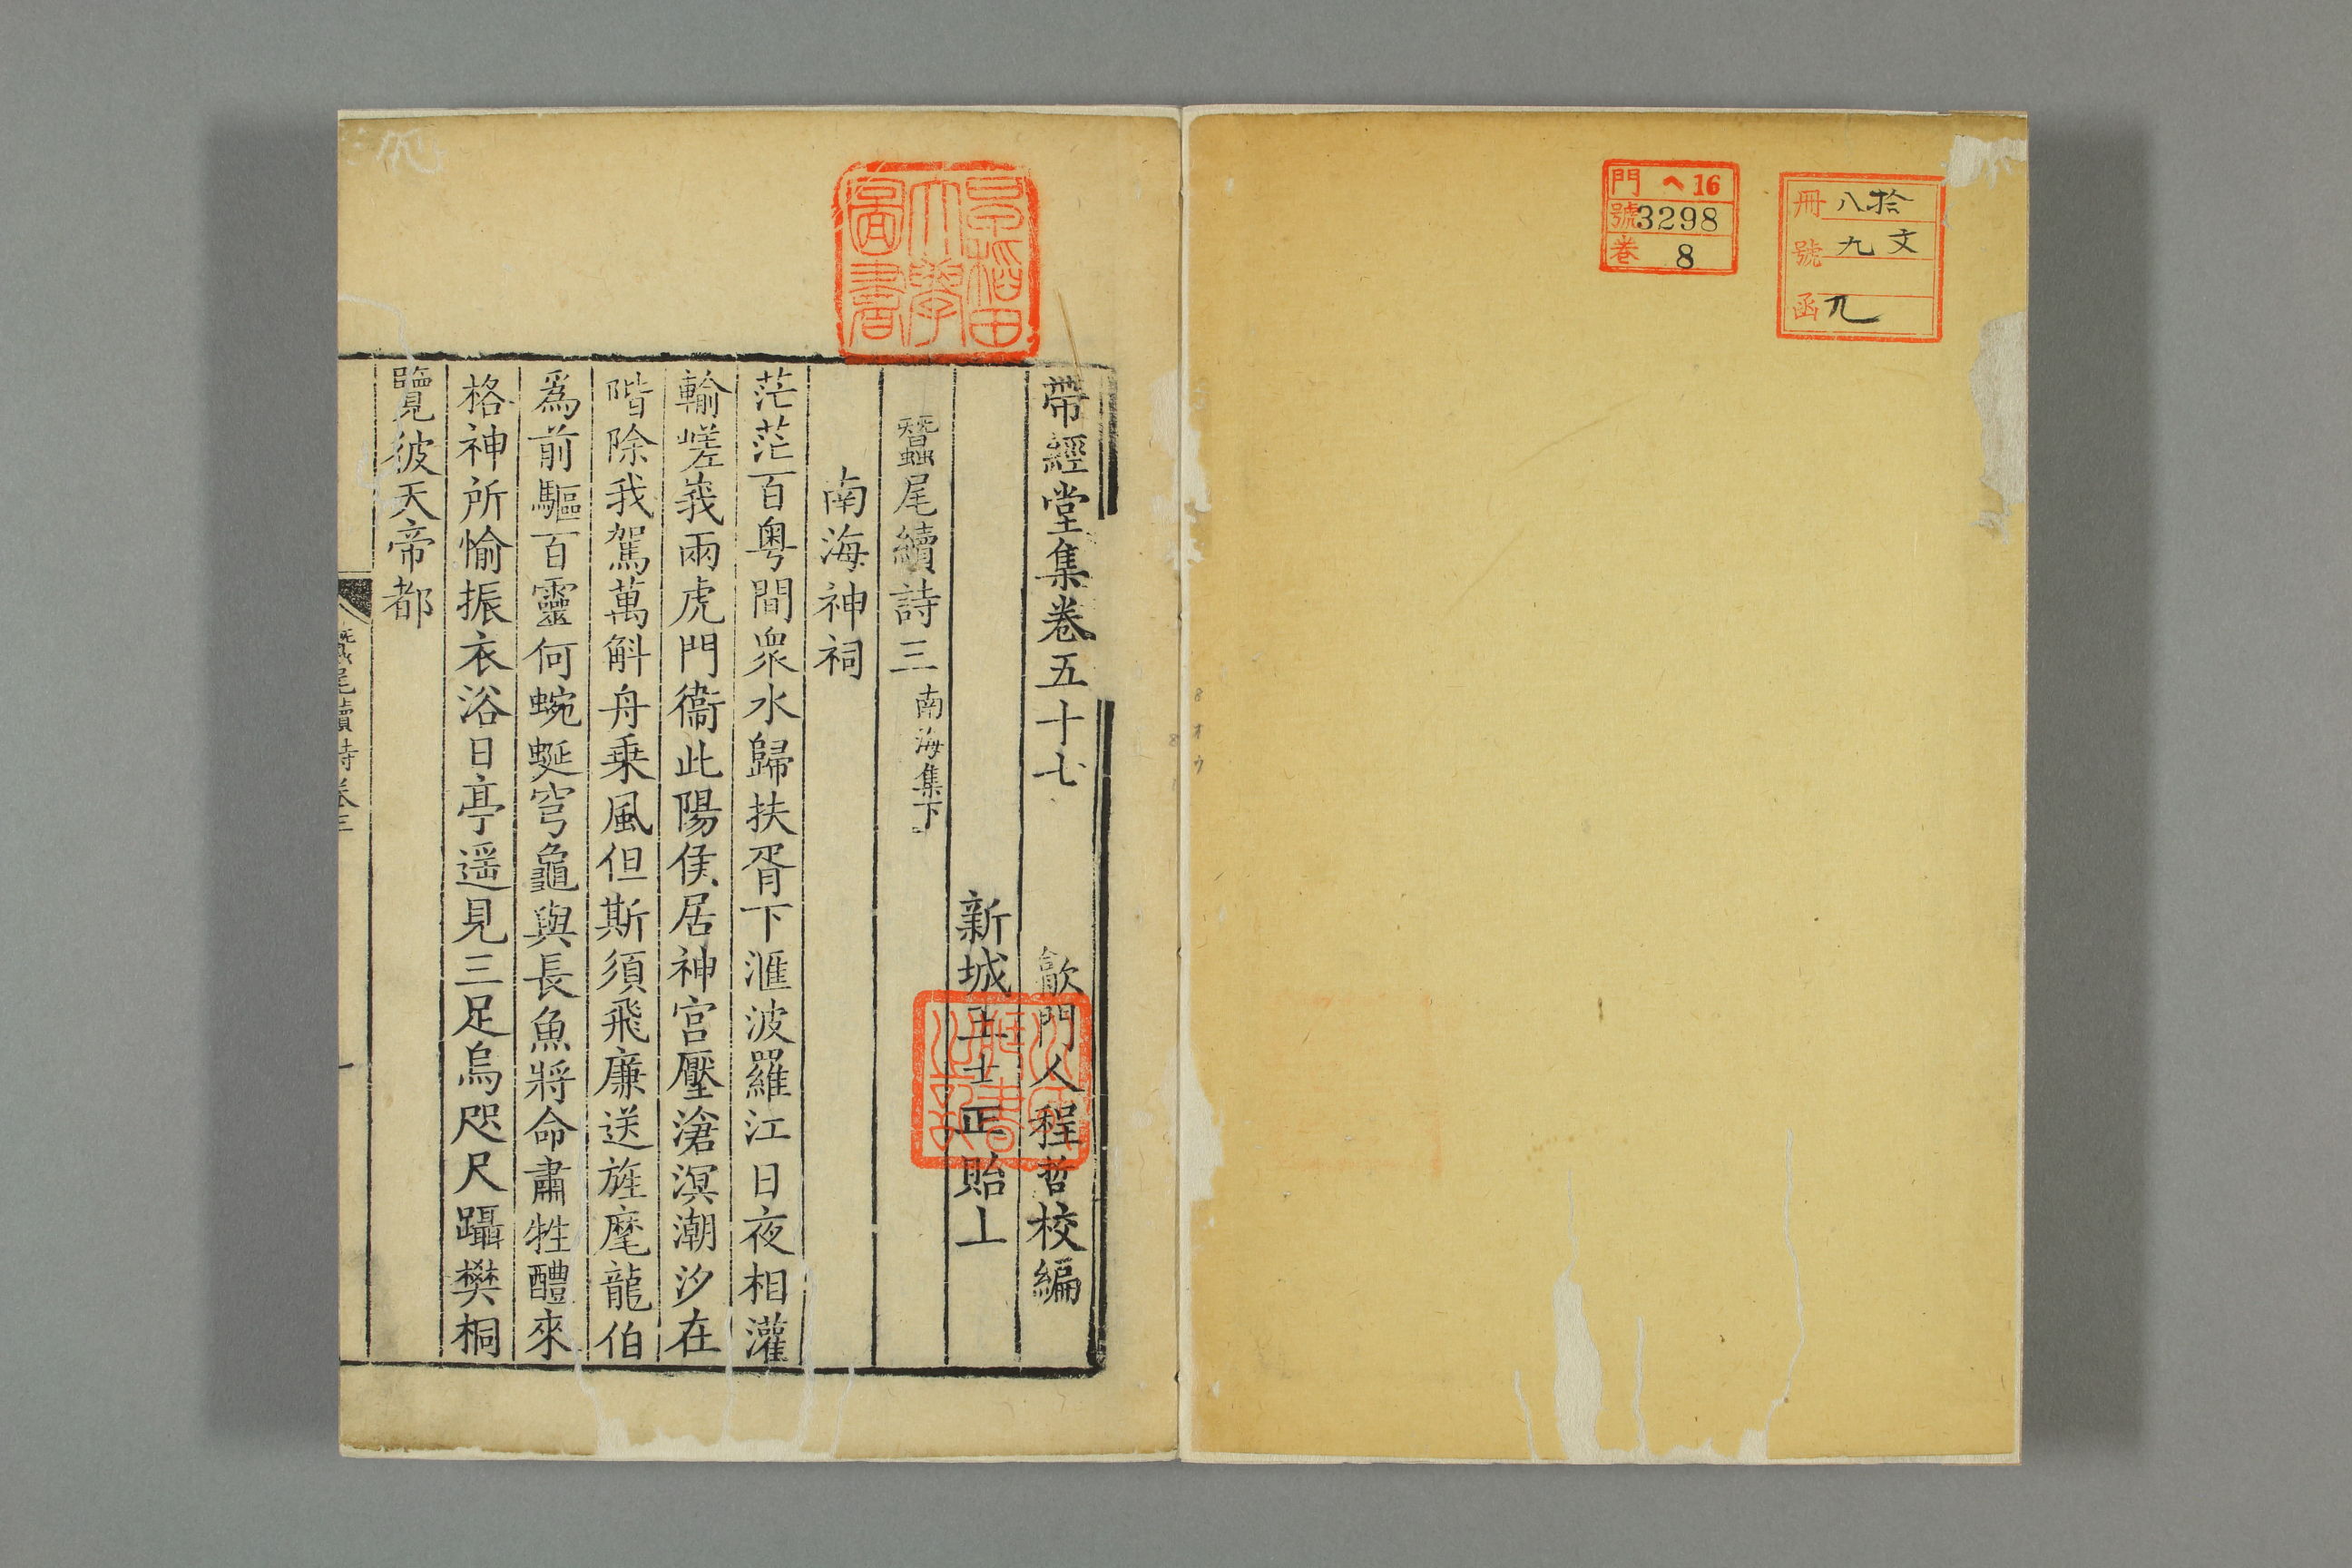 冊 八拾
號 九文
函
門 ヘ16
號 3298
卷 8
早稻田大學圖書
帶經堂集卷五十七 歙門人程哲校編
新城王士正貽上
蠶尾續詩三 南海集下
南海神祠
茫茫百粤間衆水歸扶胥下滙波羅江日夜相灌
輸嵯峩兩虎門衞此陽侯居神宫壓滄溟潮汐在
階除我駕萬斛舟乗風但斯須飛廉送旌麾龍伯
爲前驅百靈何蜿蜒穹龜與長魚將命肅牲醴來
格神所愉振衣浴日亭遥見三足烏咫尺躡樊桐
覽彼天帝都
蠶尾續詩卷三
一